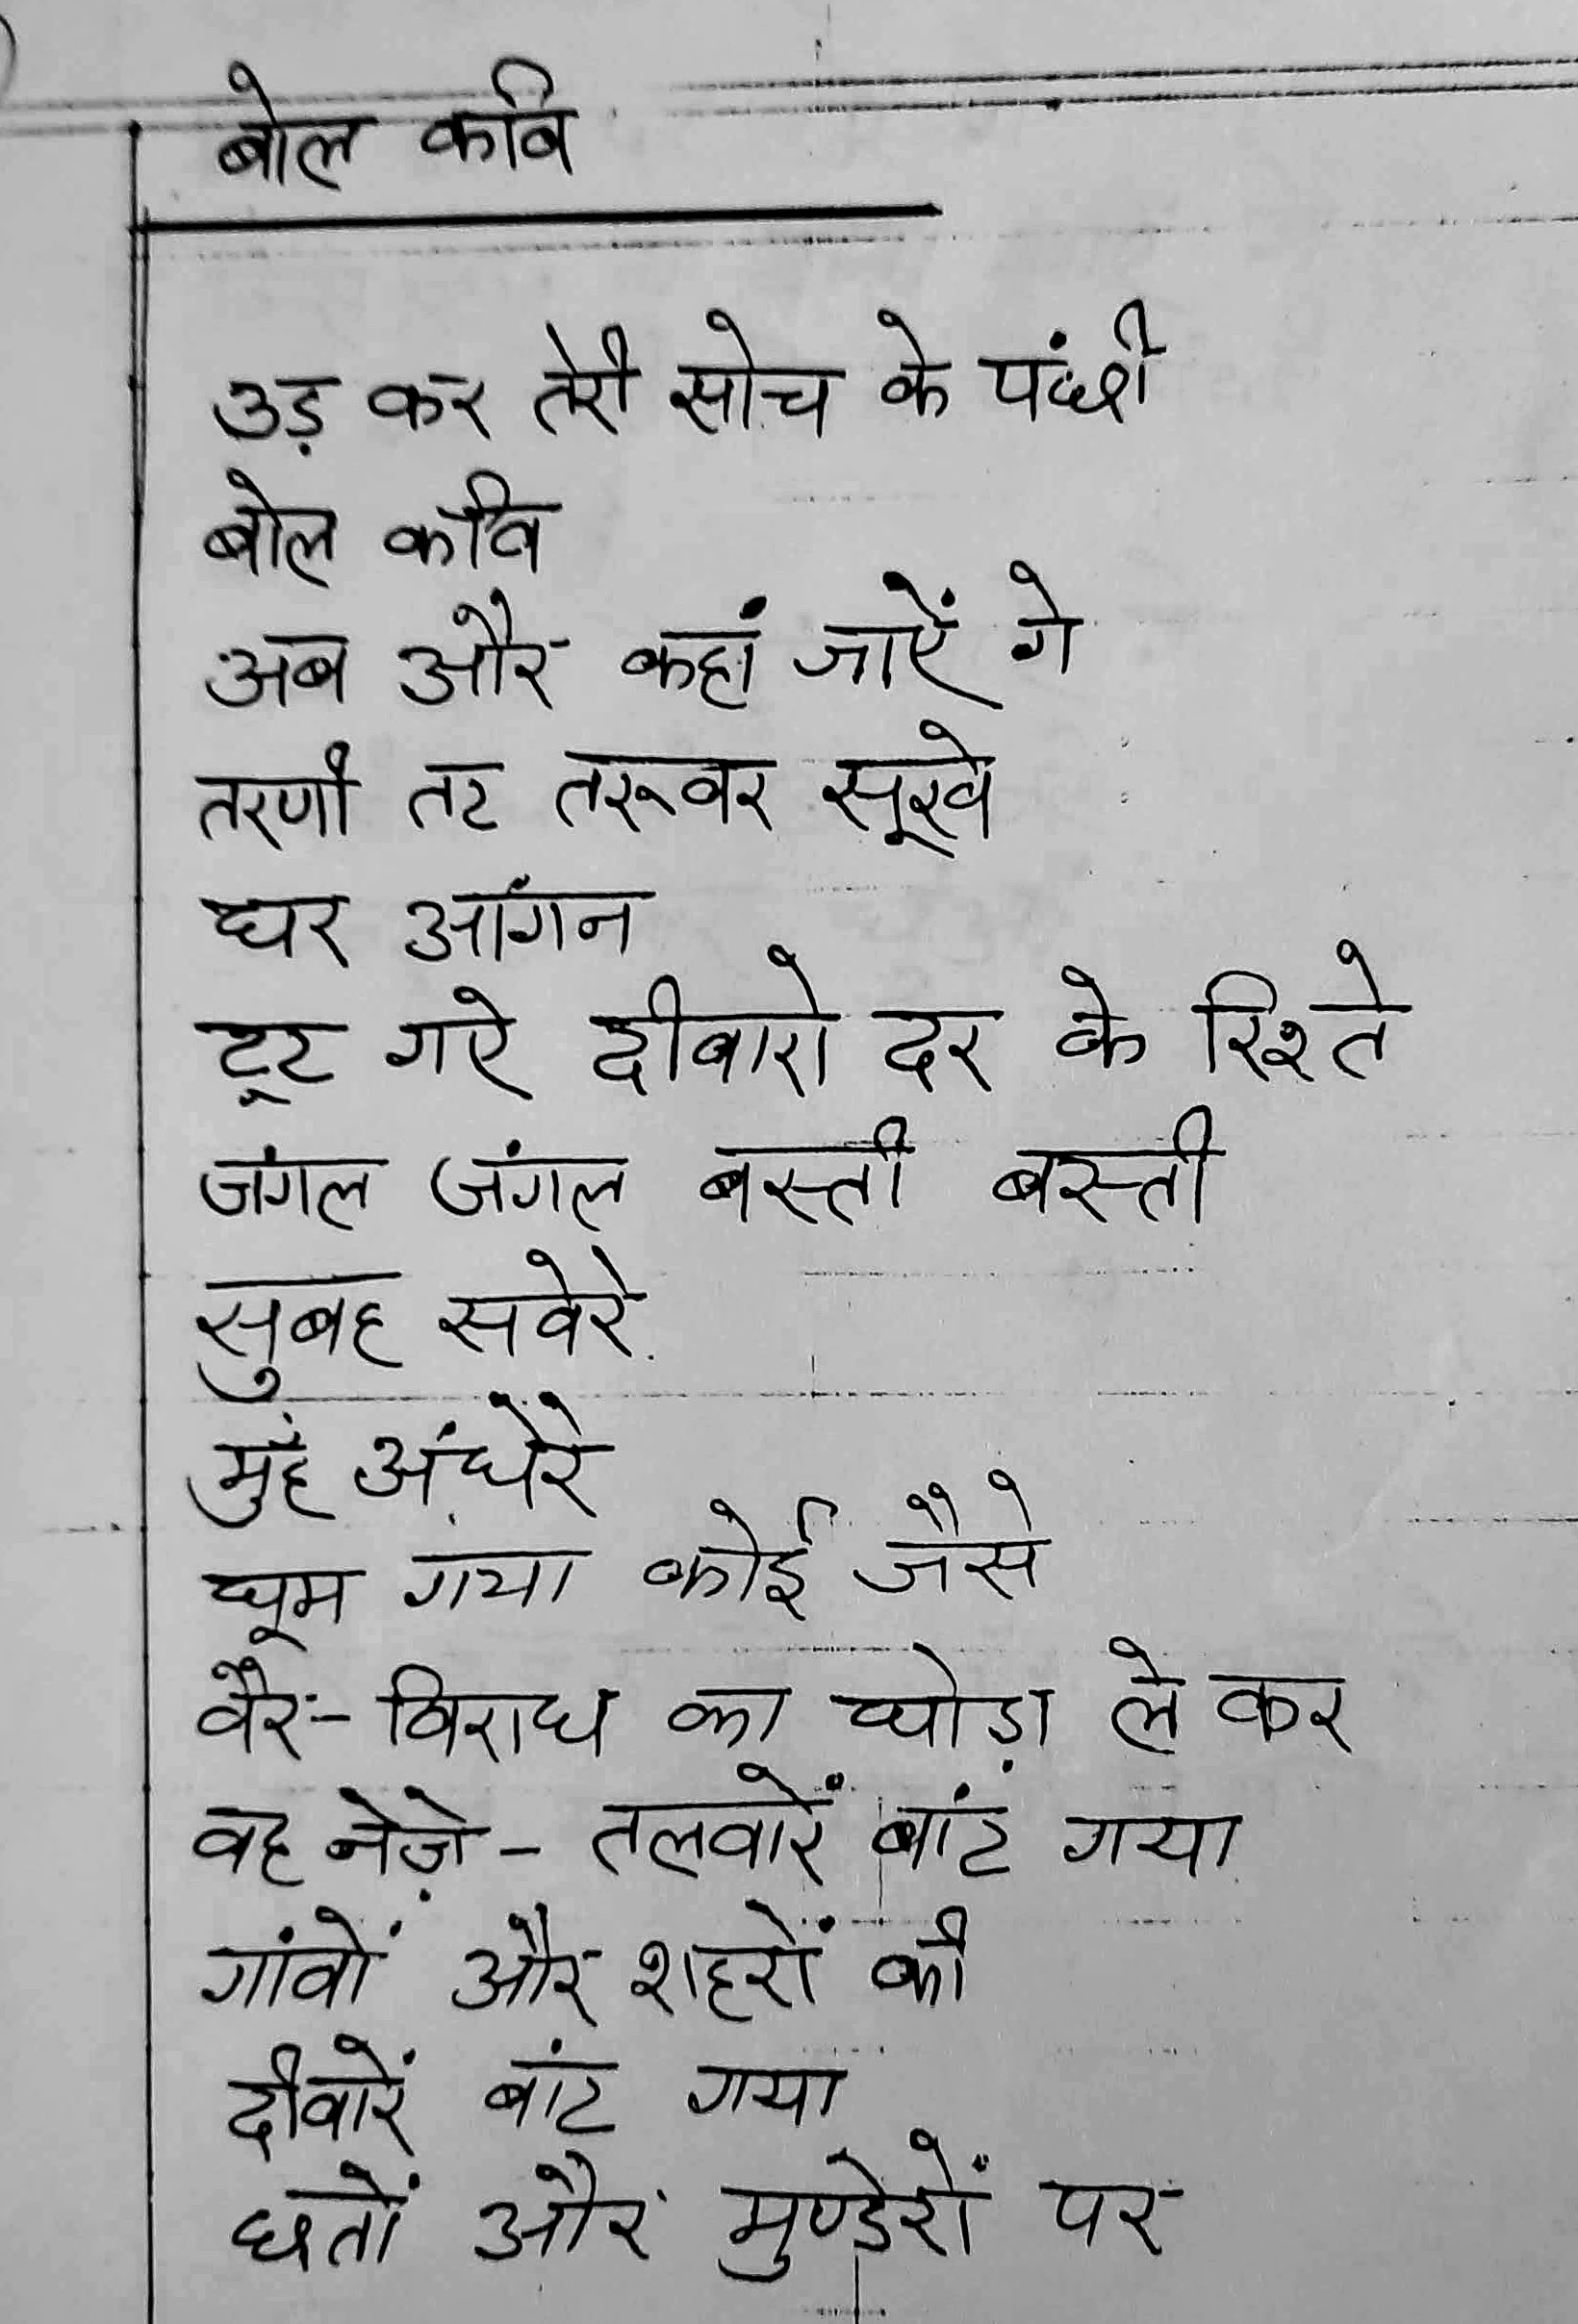 बोल कवि
उड़ कर तेरी सोच के पंछी
बोल कवि
अब और कहां जाएें गे
तरणी तट तरूवर सूखे
घर आंगन
टूट गए दीवारो दर के रिश्ते
जंगल जंगल बस्ती बस्ती
सुबह सवेरे
मुंह अंधेरे
घूम गया कोई जैसे
वैर-विराध का घोड़ा ले कर
वह नेज़े - तलवारें बांट गया
गांवों और शहरों की
दीवारें बांट गया
छतों और मुण्डेरों पर